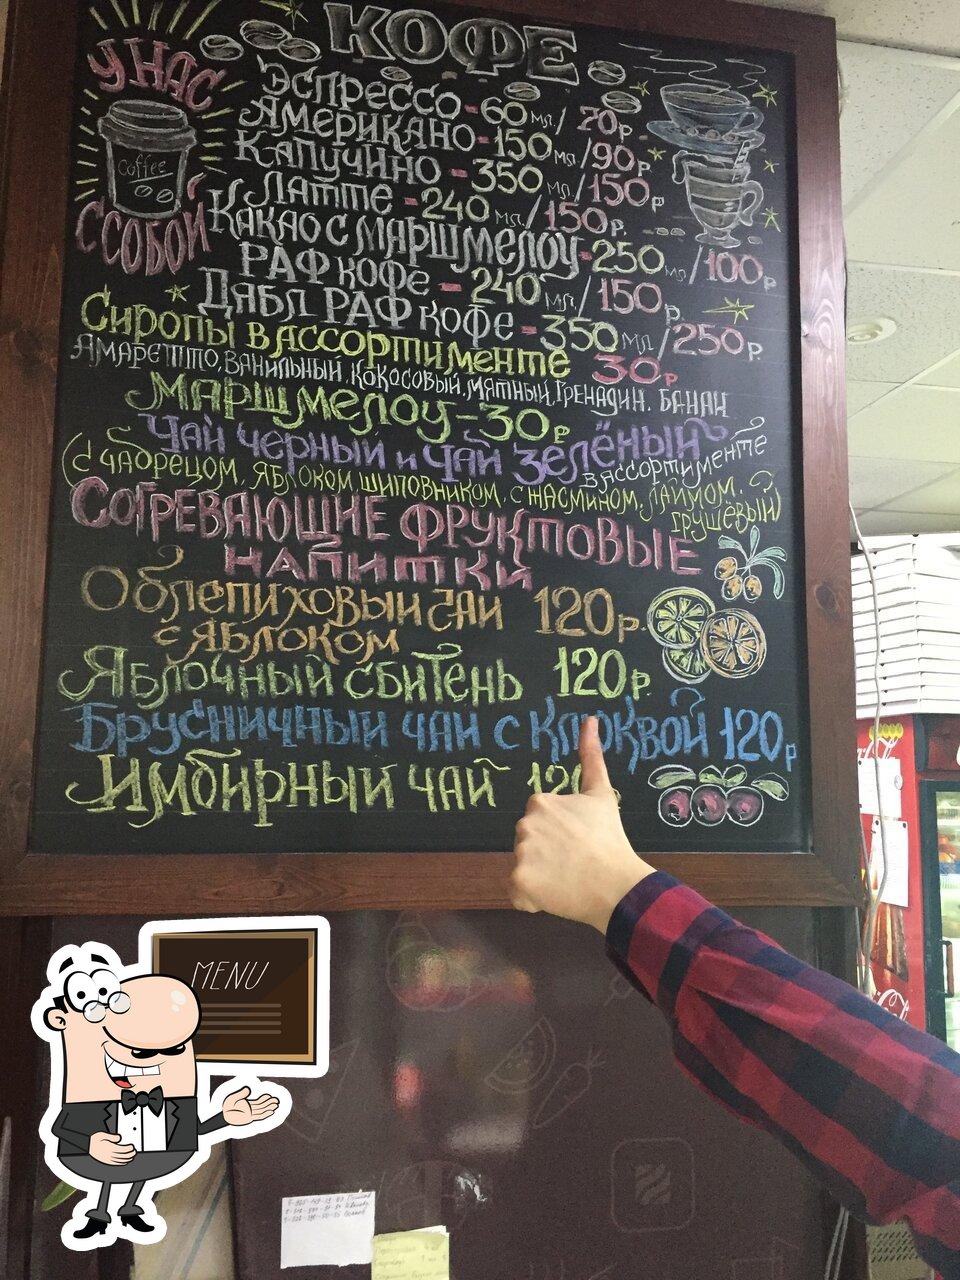 КОФЕ
У НАС
Coffee
С СОБОЙ
ЭСПРЕССО - 60 мл / 70 р
АМЕРИКАНО - 150 мл / 90 р
КАПУЧИНО - 350 мл / 150 р
ЛАТТЕ - 240 мл / 150 р.
КАКАО С МАРШМЕЛОУ - 250 мл / 100 р
РАФ КОФЕ - 240 мл / 150 р.
ДЯБЛ РАФ КОФЕ - 350 мл / 250 р.
СИРОПЫ В АССОРТИМЕНТЕ 30 р
АМАРЕТТО, ВАНИЛЬНЫЙ, КОКОСОВЫЙ, МЯТНЫЙ, ГРЕНАДИН. БАНАН
МАРШМЕЛОУ - 30 р
ЧАЙ ЧЕРНЫЙ И ЧАЙ ЗЕЛЁНЫЙ
В АССОРТИМЕНТЕ
(С ЧАБРЕЦОМ, ЯБЛОКОМ ШИПОВНИКОМ, С ЖАСМИНОМ, ЛАЙМОМ
ГРУШЕВЫЙ)
СОГРЕВАЮЩИЕ ФРУКТОВЫЕ
НАПИТКИ
ОБЛЕПИХОВЫЙ ЧАЙ 120 р.
С ЯБЛОКОМ
ЯБЛОЧНЫЙ СБИТЕНЬ 120 р.
БРУСНИЧНЫЙ ЧАЙ С КЛЮКВОЙ 120 р
ИМБИРНЫЙ ЧАЙ 120
MENU